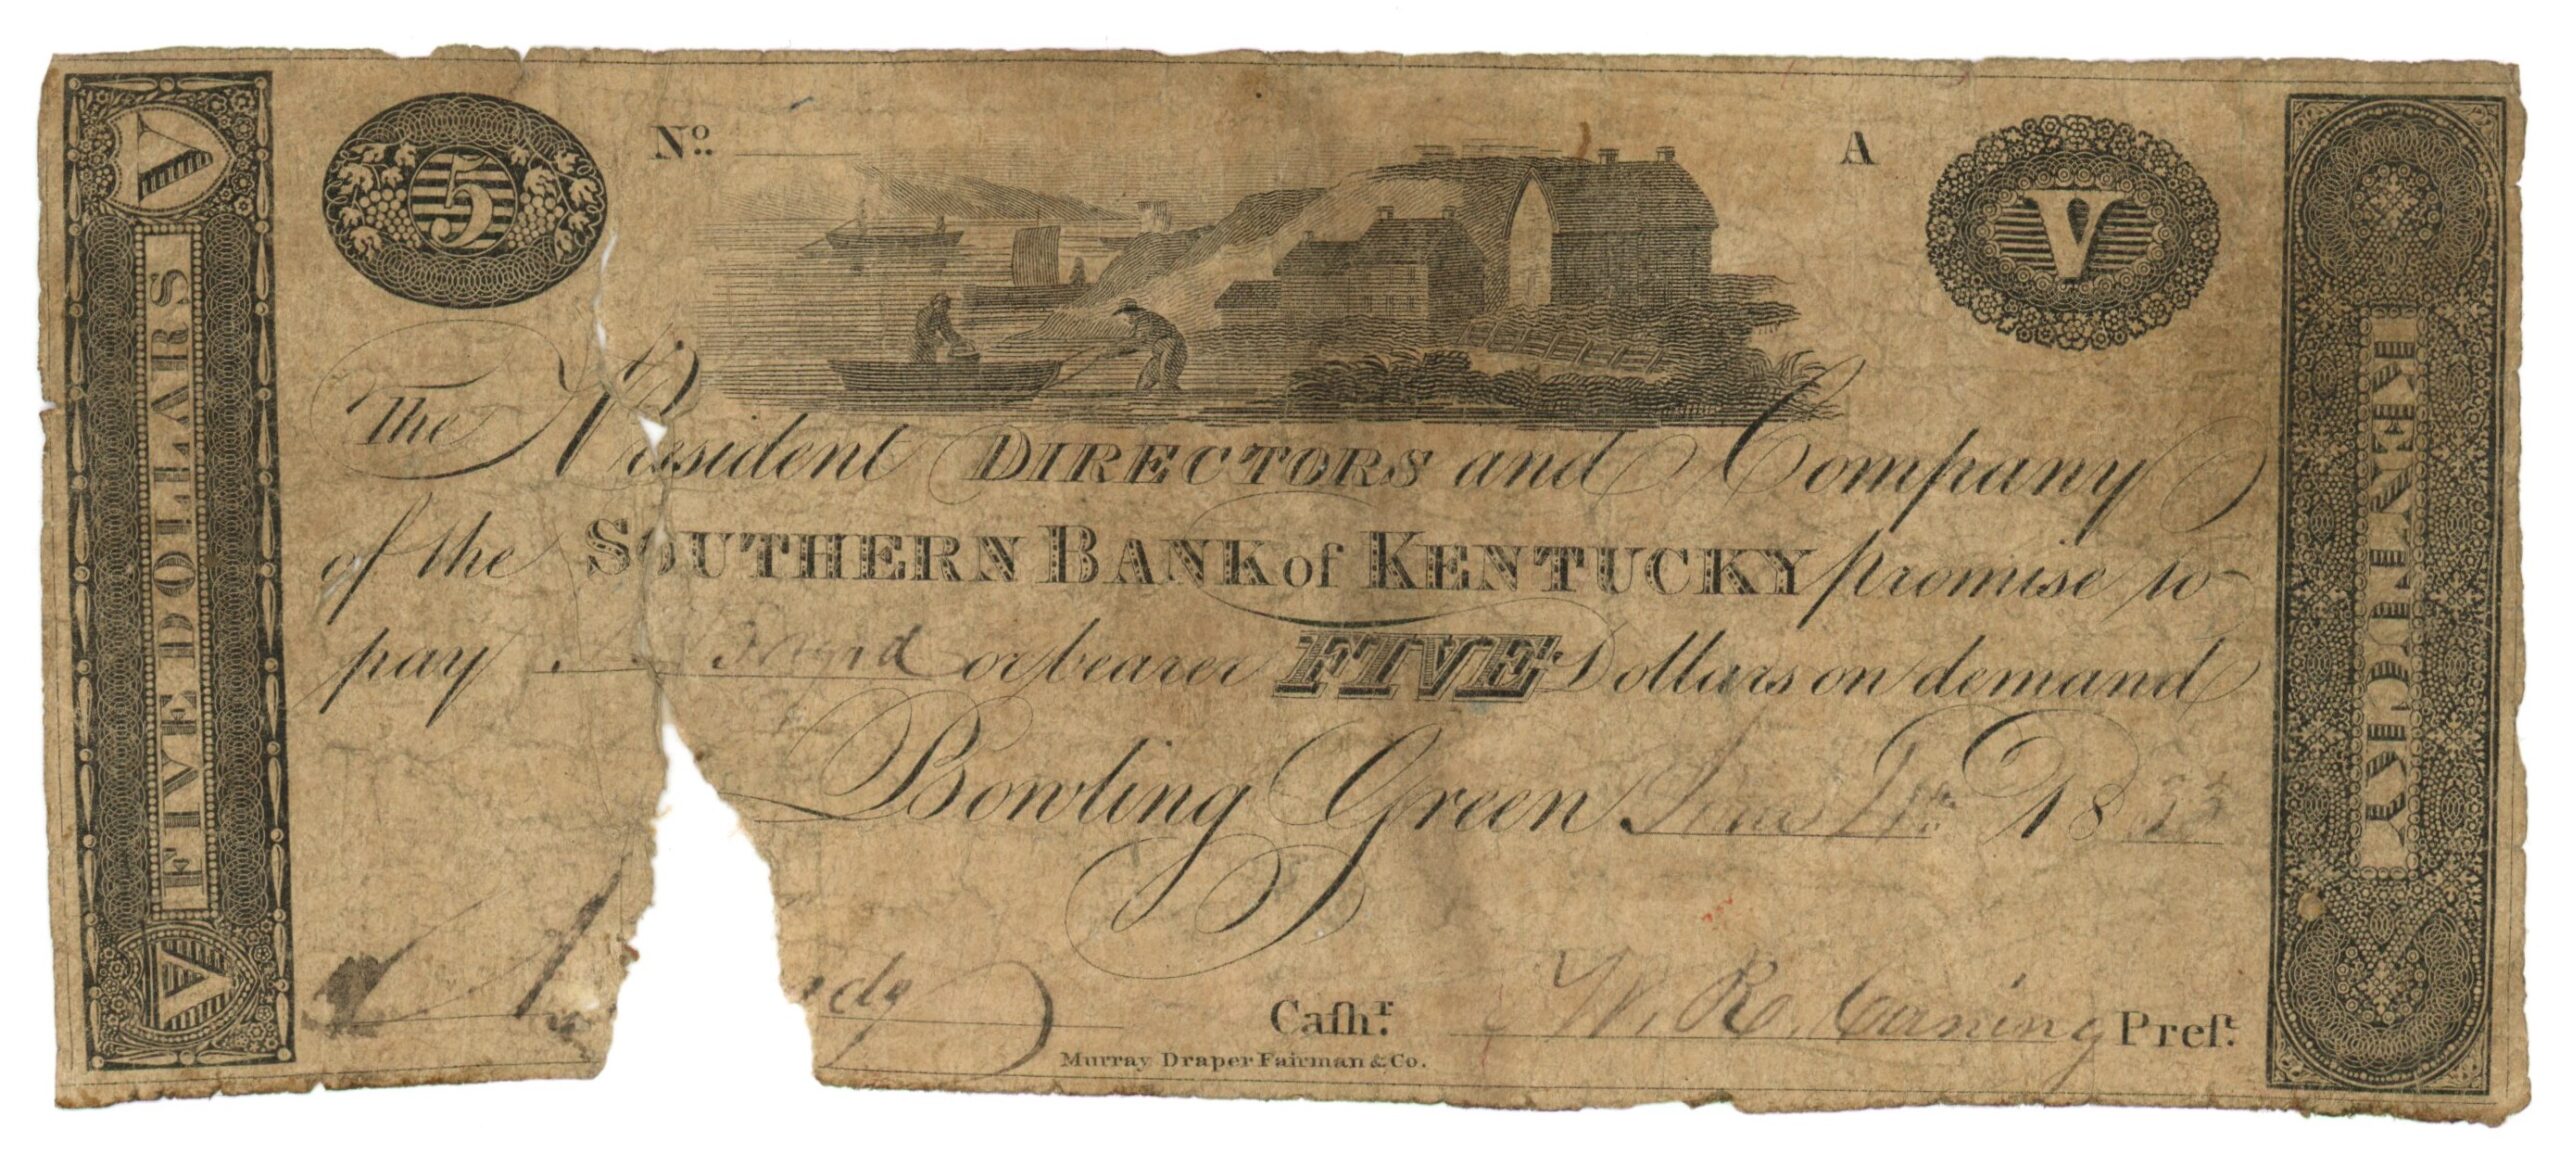 V
FIVE DOLLARS
V
5
Nº
A
V
KENTUCKY
The President DIRECTORS and Company
of the SOUTHERN BANK of KENTUCKY promise to
pay or bearer FIVE Dollars on demand
Bowling Green 18
Caſhʳ. W. R. Corning Preſᵗ.
Murray Draper Fairman & Co.